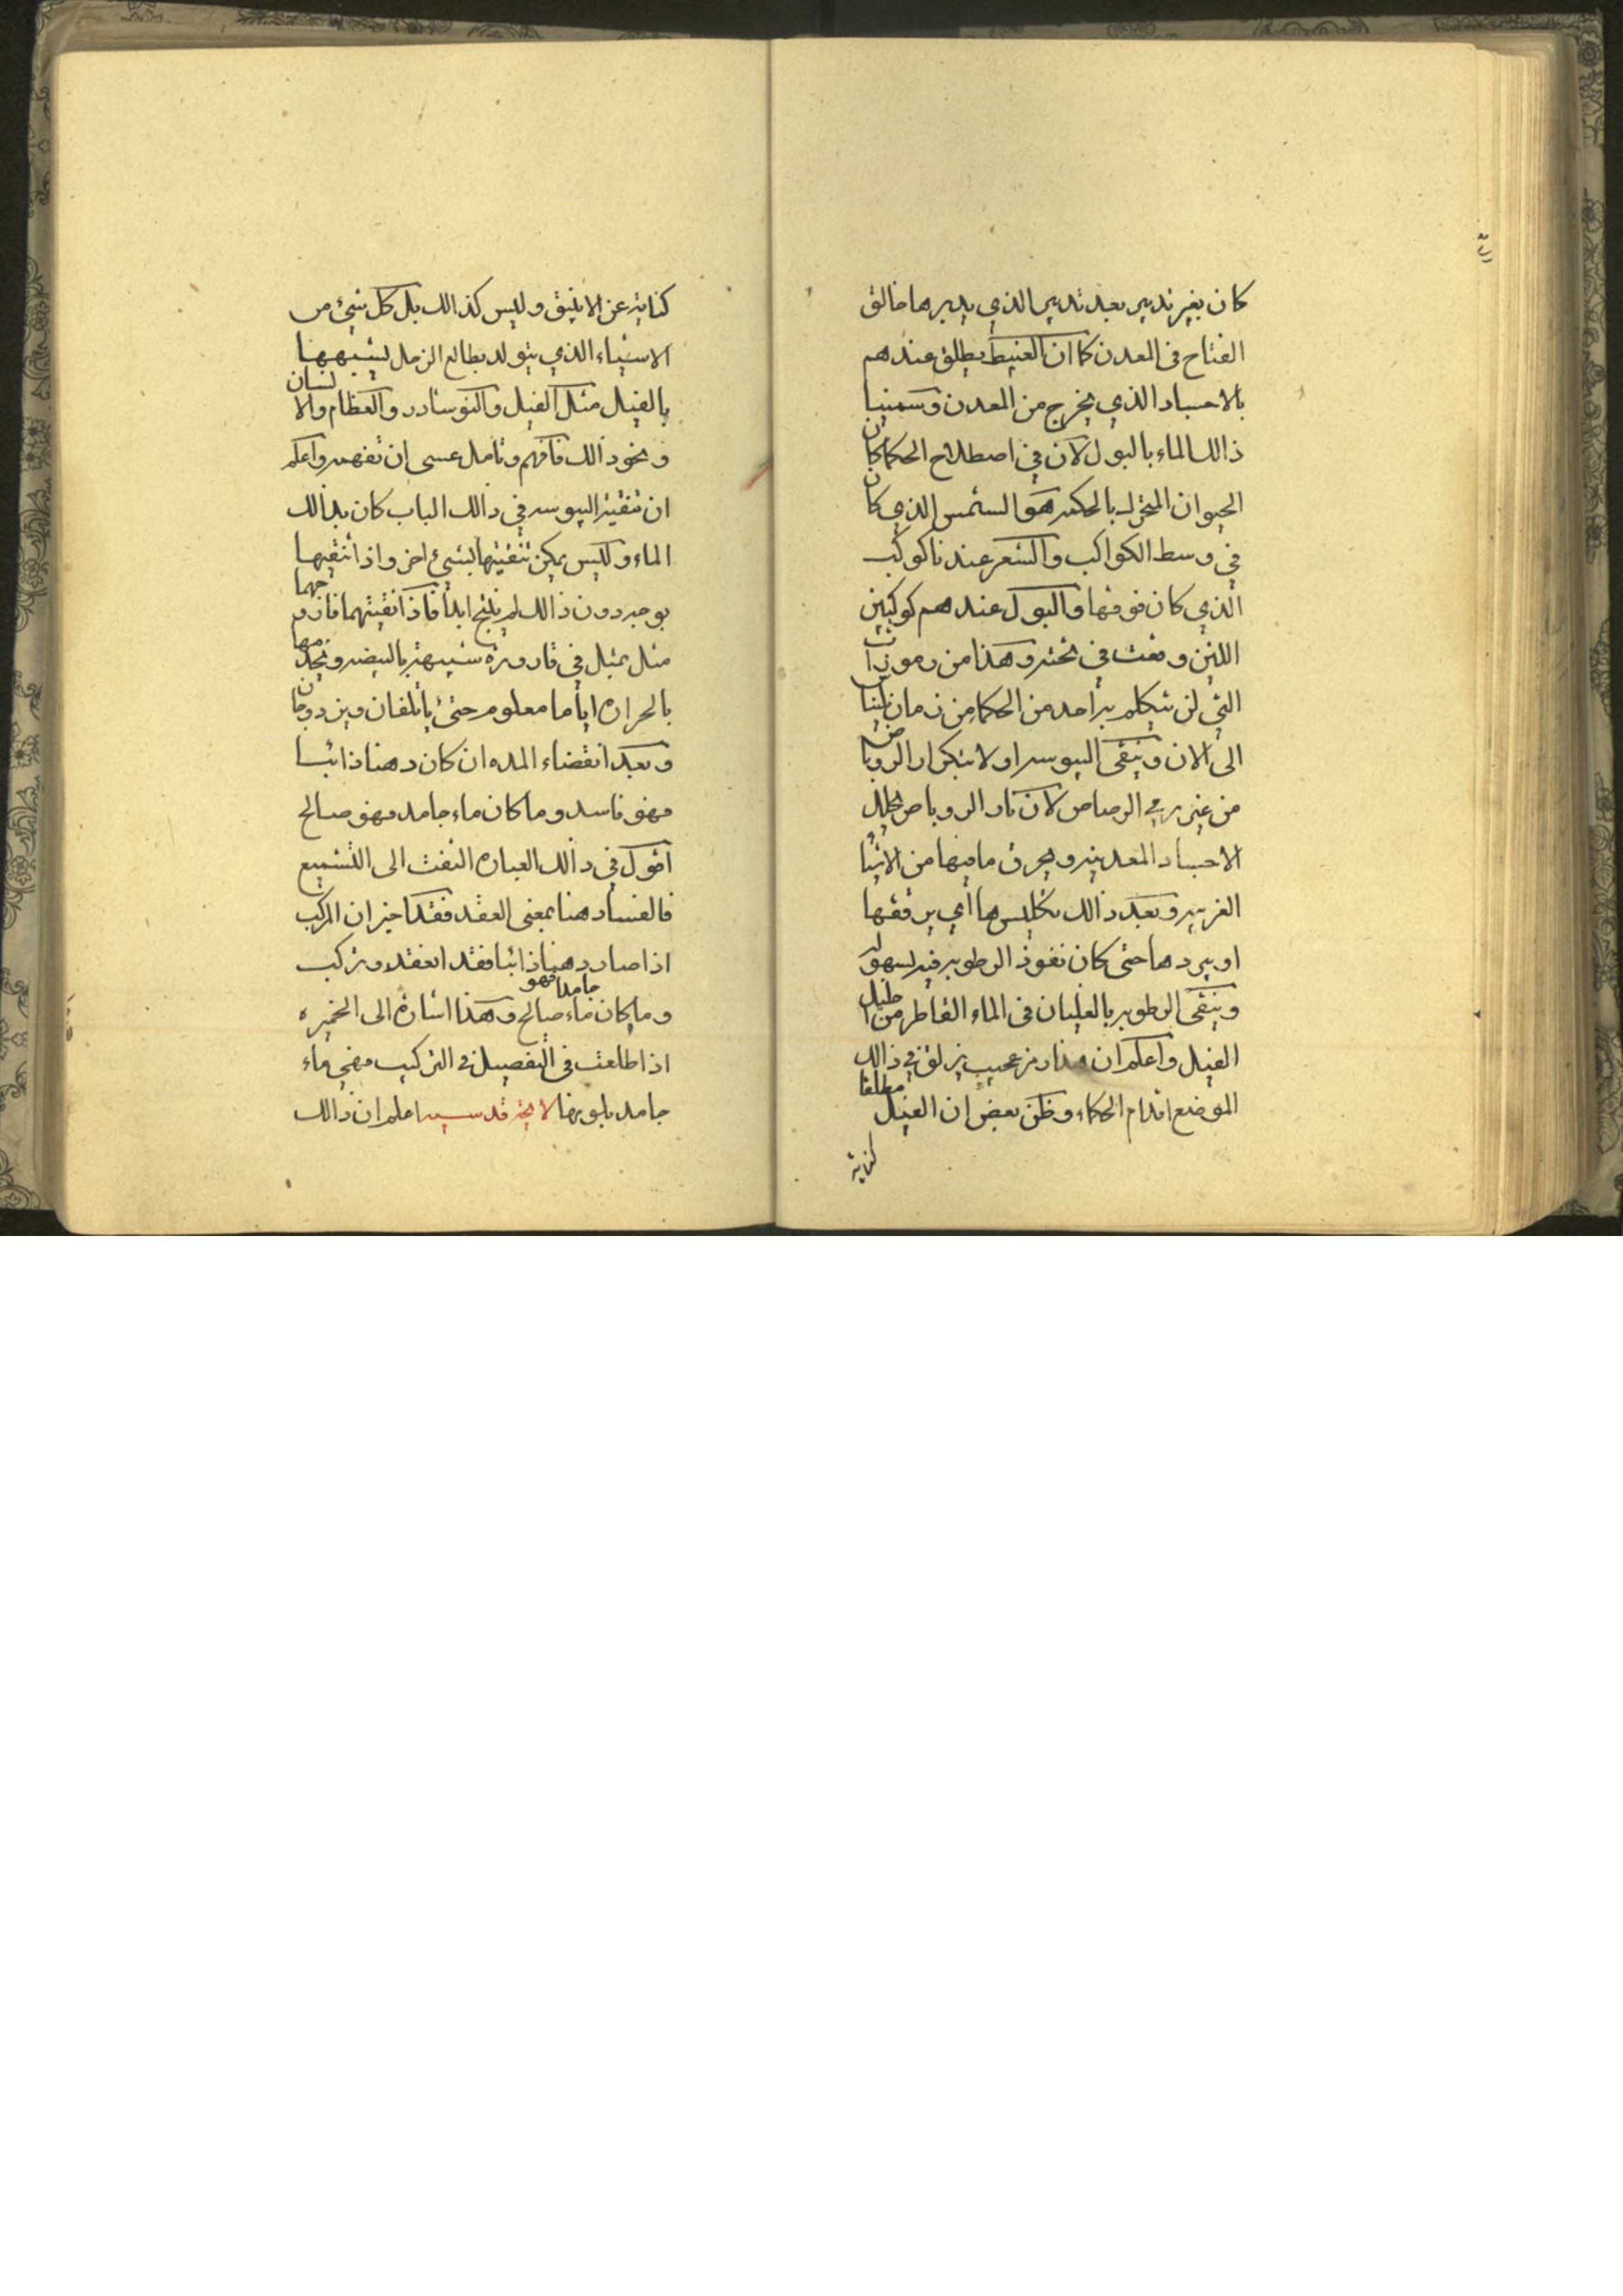 كان بغير تدبير بعد تدبير الذي يدبرها خالق
الفتاح في المعدن كما ان الغبيط يطلق عندهم
بالاجساد الذي يخرج من المعدن وسمينا
ذالك الماء بالبول لان في اصطلاح الحكما كان
الحيوان المتحرك بالحكمه هو الشمس الذي كان
في وسط الكواكب والشعر عندنا كوكب
الذي كان فوقها والبول عندهم كوكبين
اللتين وقعت في تحته وهذا من رموزات
التي لن يتكلم به احد من الحكما من زمان
الى الان وينقى اليبوسه اولا بتكرار الروباص
من غير رمي الرصاص لان نار الروباص
الاجساد المعدنيه ويحرق ما فيها من الاشيا
الغريبه وبعد ذالك تكليسها اي يرققها
او يبردها حتى كان نفوذ الرطوبه فيه لسهولة
وينقى الرطوبه بالغليان في الماء القاطر من
الفيل واعلم ان هنا رمز عجيب يزلق في ذالك
الموضع اقدام الحكماء وظن بعض ان الفيل مطلقا
كناية
كناية عن الانبيق وليس كذالك بل كل شيئ من
الاشياء الذي يتولد بطالع الزحل يشبهها
بالفيل مثل الفيل والنوشادر والعظام والانسان
ونحو ذالك فافهم وتامل عسى ان تفهم واعلم
ان تنقية اليبوسه في ذالك الباب كان بذالك
الماء وليس يمكن تنقيتها بشيئ اخر واذا تنقيها
بوجه دون ذالك لم ينتج ابدا فاذا نقيتهما فازوجهما
مثل بمثل في قارورة شبيهة بالبيضه
بالحرارة اياما معلوم حتى ياتلفان ويزدوجان
وبعد انقضاء المده ان كان دهنا ذائبا
فهو فاسد وما كان ماء جامد فهو صالح
اقول في ذالك العبارة التفت الى التشميع
فالفساد هنا بمعنى العقد فقد اخبر ان المركب
اذا صار دهنا ذائبا فقد انعقد وتركب
وما كان ماء جامدا فهو صالح وهذا اشارة الى الخميره
اذا طلعت في التفصيل في التركيب فهي ماء
جامد بلوريها اعلم ان ذالك